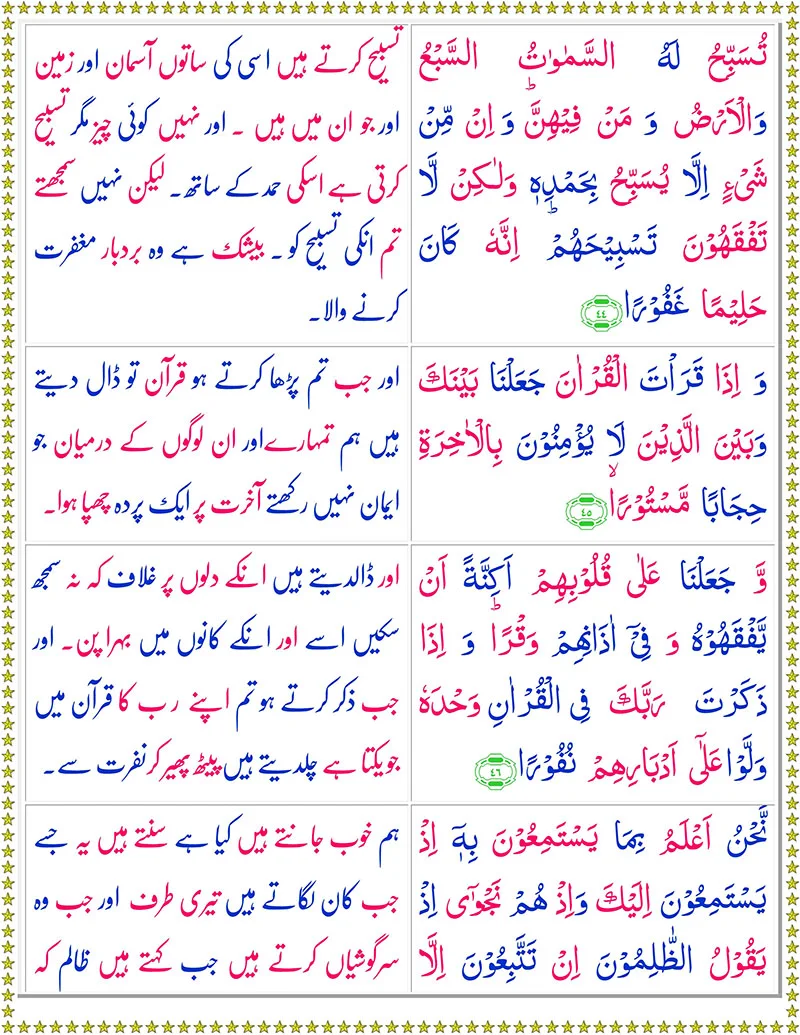 تُسَبِّحُ لَهُ السَّمٰوٰتُ السَّبْعُ
وَالْاَرْضُ وَ مَنْ فِيْهِنَّ ؕ وَ اِنْ مِّنْ
شَیْءٍ اِلَّا يُسَبِّحُ بِحَمْدِهٖ وَلٰكِنْ لَّا
تَفْقَهُوْنَ تَسْبِيْحَهُمْ ؕ اِنَّهٗ كَانَ
حَلِيْمًا غَفُوْرًا ﴿٤٤﴾
تسبیح کرتے ہیں اسی کی ساتوں آسمان اور زمین
اور جو ان میں ہیں ۔ اور نہیں کوئی چیز مگر تسبیح
کرتی ہے اسکی حمد کے ساتھ۔ لیکن نہیں سمجھتے
تم انکی تسبیح کو ۔ بیشک ہے وہ بردبار مغفرت
کرنے والا۔
وَ اِذَا قَرَاْتَ الْقُرْاٰنَ جَعَلْنَا بَيْنَكَ
وَبَيْنَ الَّذِيْنَ لَا يُؤْمِنُوْنَ بِالْاٰخِرَةِ
حِجَابًا مَّسْتُوْرًا ۙ ﴿٤٥﴾
اور جب تم پڑھا کرتے ہو قرآن تو ڈال دیتے
ہیں ہم تمہارے اور ان لوگوں کے درمیان جو
ایمان نہیں رکھتے آخرت پر ایک پردہ چھپا ہوا۔
وَّ جَعَلْنَا عَلٰى قُلُوْبِهِمْ اَكِنَّةً اَنْ
يَّفْقَهُوْهُ وَ فِیْۤ اٰذَانِهِمْ وَقْرًا ؕ وَ اِذَا
ذَكَرْتَ رَبَّكَ فِی الْقُرْاٰنِ وَحْدَهٗ
وَلَّوْا عَلٰۤى اَدْبَارِهِمْ نُفُوْرًا ﴿٤٦﴾
اور ڈالدیتے ہیں انکے دلوں پر غلاف کہ نہ سمجھ
سکیں اسے اور انکے کانوں میں بہرا پن۔ اور
جب ذکر کرتے ہو تم اپنے رب کا قرآن میں
جو یکتا ہے چلدیتے ہیں پیٹھ پھیر کر نفرت سے۔
نَّحْنُ اَعْلَمُ بِمَا يَسْتَمِعُوْنَ بِهٖۤ اِذْ
يَسْتَمِعُوْنَ اِلَيْكَ وَاِذْ هُمْ نَجْوٰٓى اِذْ
يَقُوْلُ الظّٰلِمُوْنَ اِنْ تَتَّبِعُوْنَ اِلَّا
ہم خوب جانتے ہیں کیا ہے سنتے ہیں یہ جسے
جب کان لگاتے ہیں تیری طرف اور جب وہ
سرگوشیاں کرتے ہیں جب کہتے ہیں ظالم کہ